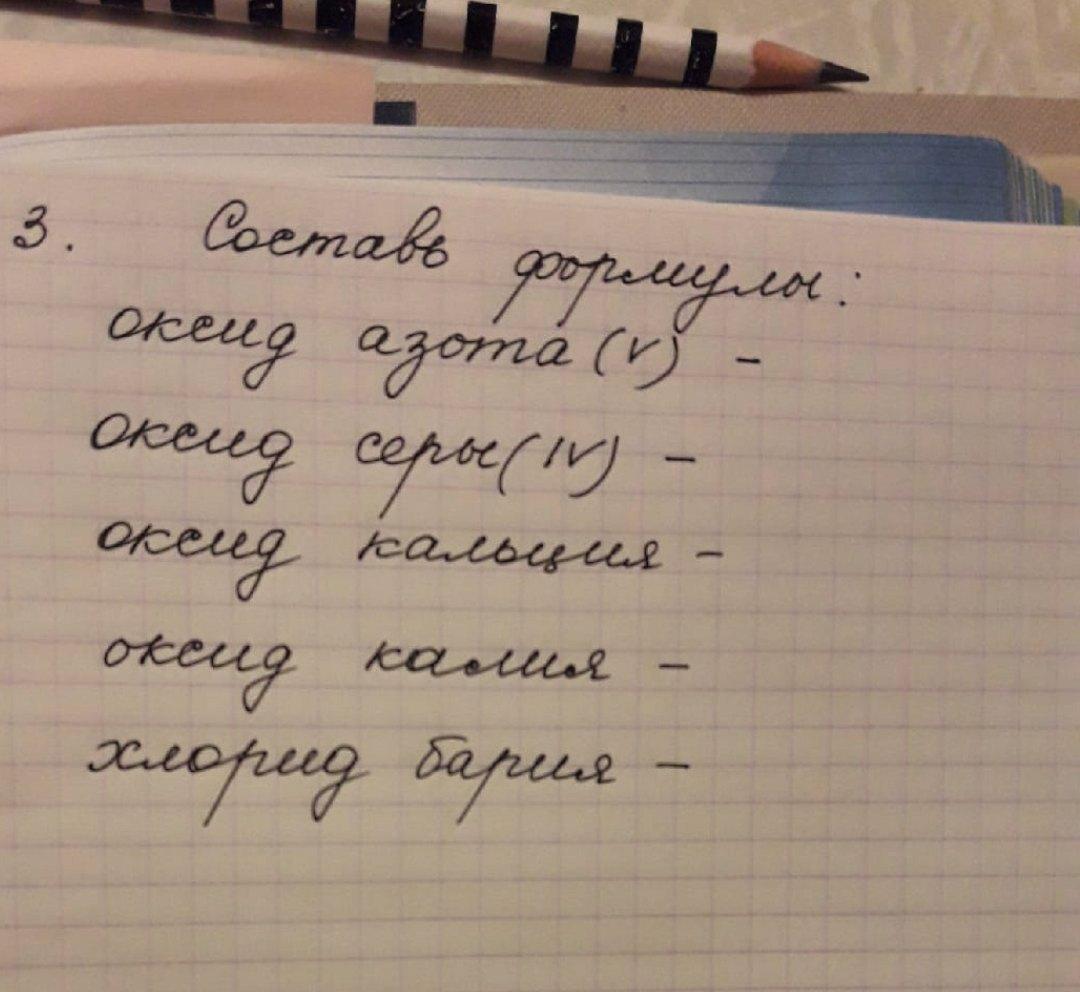 3. Составь формулы:
оксид азота (V) -
оксид серы (IV) -
оксид кальция -
оксид калия -
хлорид бария -